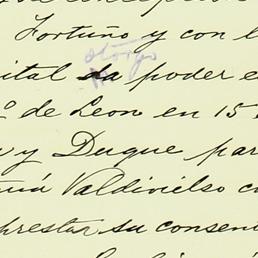 Fortuño y con l
otorgo
ital da poder e
o de Leon en 15
y Duque par
Valdivielso c
prestar su consen